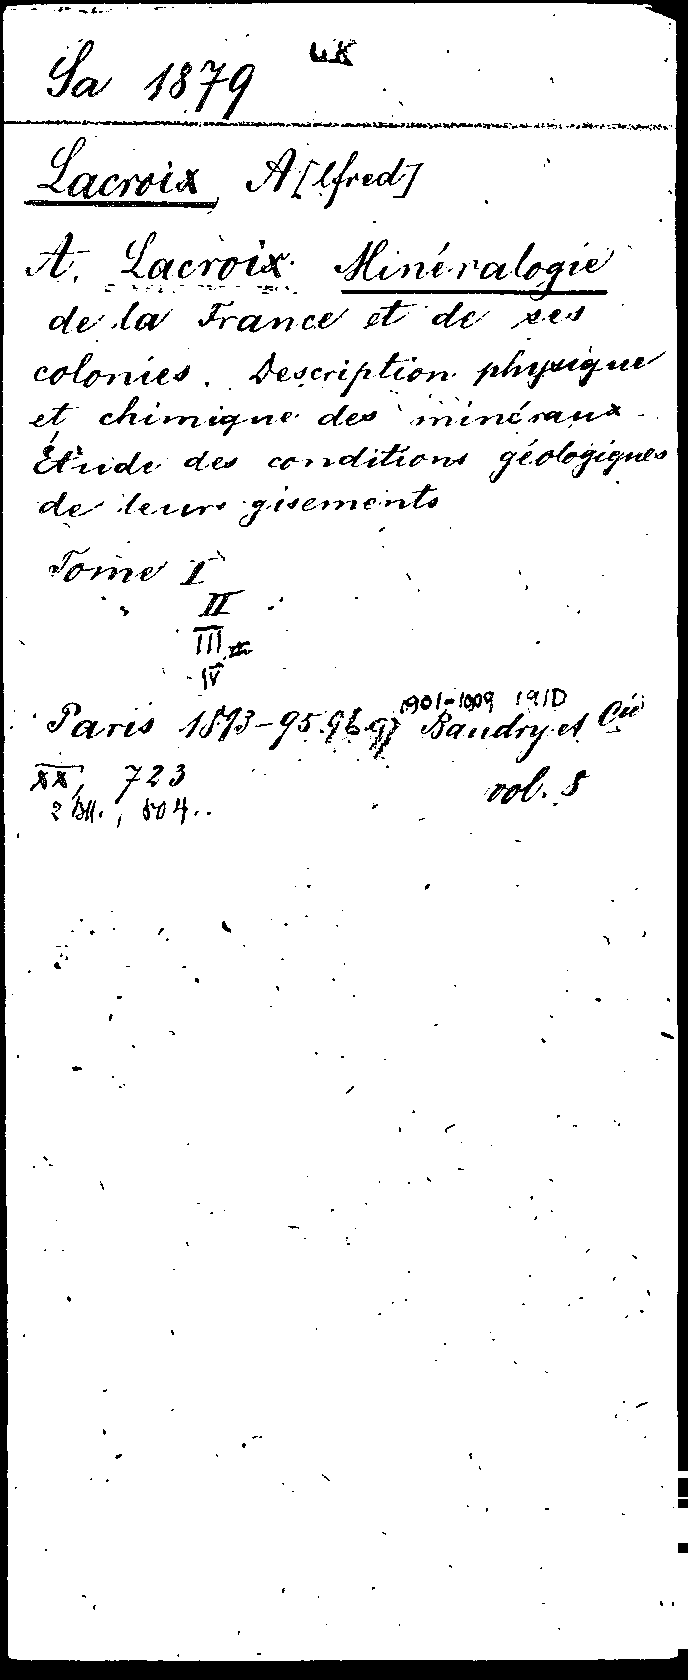 Sa 1879
Lacroix A[lfred]
A. Lacroix. Minéralogie
de la France et de ses
colonies. Description physique
et chimique des minéraux
Étude des conditions géologiques
de leurs gisements
Tome I
" II
III
IV
1901-1909 1910
Paris 1893-95.96.97 Baudry et Cie
XX, 723 vol. 5
2 Bll., 804..